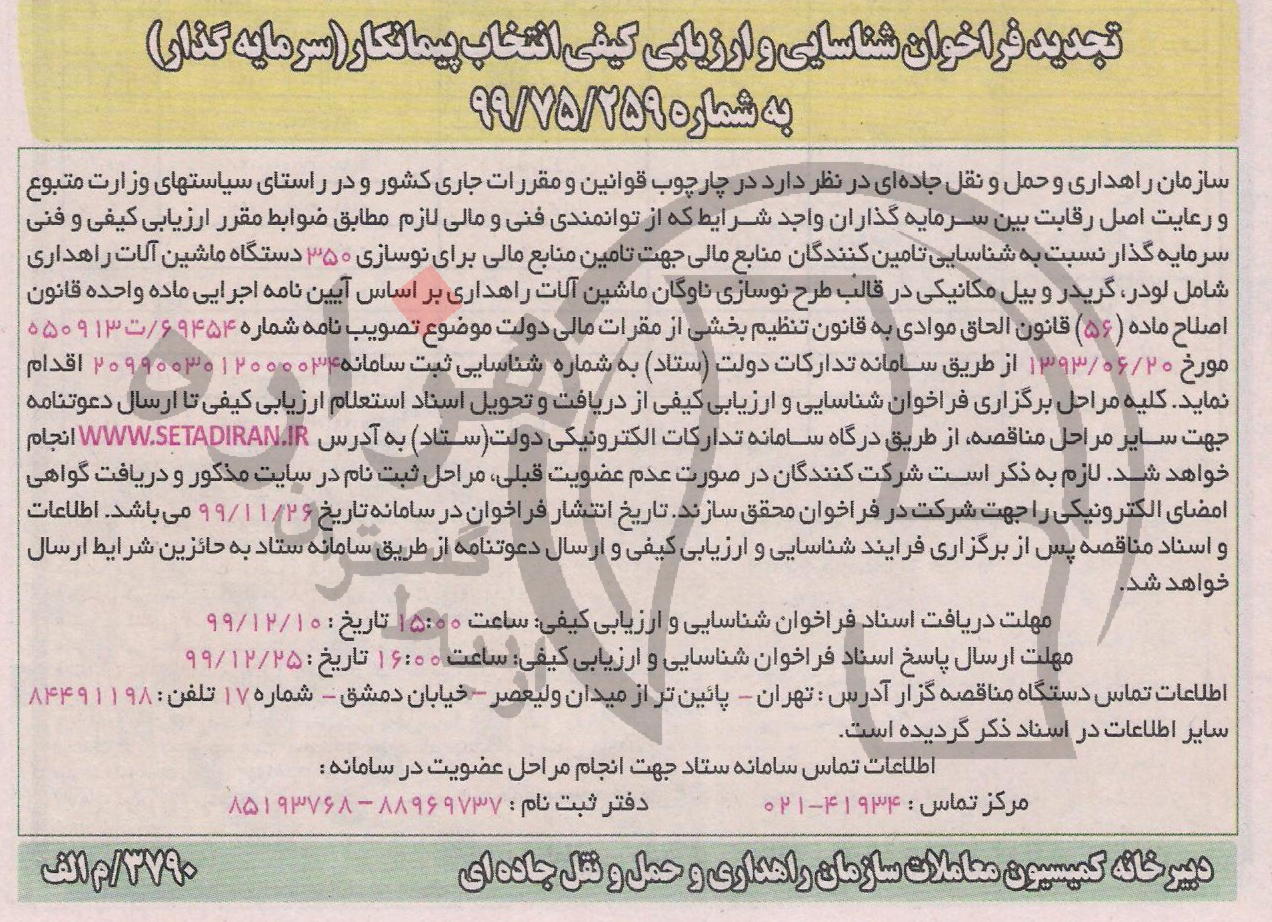 تجدید فراخوان شناسایی و ارزیابی کیفی انتخاب پیمانکار (سرمایه گذار)
به شماره ۹۹/۷۵/۲۵۹
سازمان راهداری و حمل و نقل جاده‌ای در نظر دارد در چارچوب قوانین و مقررات جاری کشور و در راستای سیاستهای وزارت متبوع
و رعایت اصل رقابت بین سرمایه گذاران واجد شرایط که از توانمندی فنی و مالی لازم مطابق ضوابط مقرر ارزیابی کیفی و فنی
سرمایه گذار نسبت به شناسایی تامین کنندگان منابع مالی جهت تامین منابع مالی برای نوسازی ۳۵۰ دستگاه ماشین آلات راهداری
شامل لودر، گریدر و بیل مکانیکی در قالب طرح نوسازی ناوگان ماشین آلات راهداری بر اساس آیین نامه اجرایی ماده واحده قانون
اصلاح ماده (۵۶) قانون الحاق موادی به قانون تنظیم بخشی از مقرات مالی دولت موضوع تصویب نامه شماره ۶۹۴۵۴/ت۵۰۹۱۳ه
مورخ ۱۳۹۳/۰۶/۲۰ از طریق سامانه تدارکات دولت (ستاد) به شماره شناسایی ثبت سامانه ۲۰۹۹۰۰۳۰۱۲۰۰۰۰۳۴ اقدام
نماید. کلیه مراحل برگزاری فراخوان شناسایی و ارزیابی کیفی از دریافت و تحویل اسناد استعلام ارزیابی کیفی تا ارسال دعوتنامه
جهت سایر مراحل مناقصه، از طریق درگاه سامانه تدارکات الکترونیکی دولت(ستاد) به آدرس WWW.SETADIRAN.IR انجام
خواهد شد. لازم به ذکر است شرکت کنندگان در صورت عدم عضویت قبلی، مراحل ثبت نام در سایت مذکور و دریافت گواهی
امضای الکترونیکی را جهت شرکت در فراخوان محقق سازند. تاریخ انتشار فراخوان در سامانه تاریخ ۹۹/۱۱/۲۶ می باشد. اطلاعات
و اسناد مناقصه پس از برگزاری فرایند شناسایی و ارزیابی کیفی و ارسال دعوتنامه از طریق سامانه ستاد به حائزین شرایط ارسال
خواهد شد.
مهلت دریافت اسناد فراخوان شناسایی و ارزیابی کیفی: ساعت ۱۵:۰۰ تاریخ : ۹۹/۱۲/۱۰
مهلت ارسال پاسخ اسناد فراخوان شناسایی و ارزیابی کیفی: ساعت ۱۶:۰۰ تاریخ : ۹۹/۱۲/۲۵
اطلاعات تماس دستگاه مناقصه گزار آدرس : تهران – پائین تر از میدان ولیعصر – خیابان دمشق – شماره ۱۷ تلفن : ۸۴۴۹۱۱۹۸
سایر اطلاعات در اسناد ذکر گردیده است.
اطلاعات تماس سامانه ستاد جهت انجام مراحل عضویت در سامانه :
مرکز تماس : ۴۱۹۳۴-۰۲۱ دفتر ثبت نام : ۸۸۹۶۹۷۳۷ – ۸۵۱۹۳۷۶۸
دبیرخانه کمیسیون معاملات سازمان راهداری و حمل و نقل جاده ای ۳۷۹۰/م الف